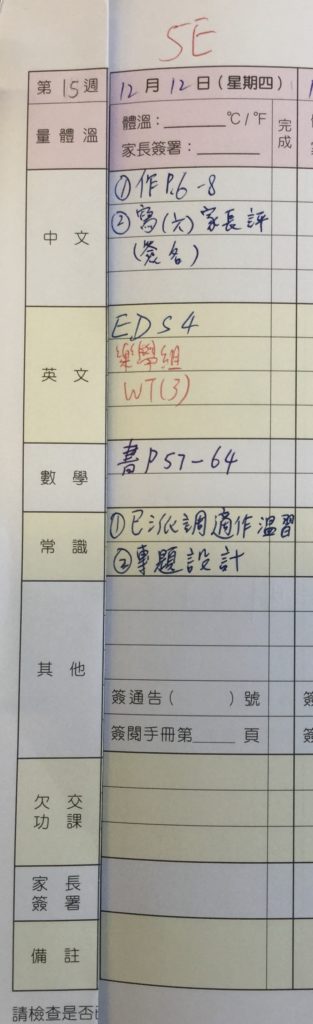 5E
第15週 12月12日(星期四)
量體溫 體溫：______°C/°F 完成
家長簽署：______
中文 ①作P.6-8
②寫(六)家長評
(簽名)
英文 EDS4
樂學組
WT(3)
數學 書P57-64
常識 ①已派調適作溫習
②專題設計
其他
簽通告( )號
簽閱手冊第____頁
欠交功課
家長簽署
備註
請檢查是否